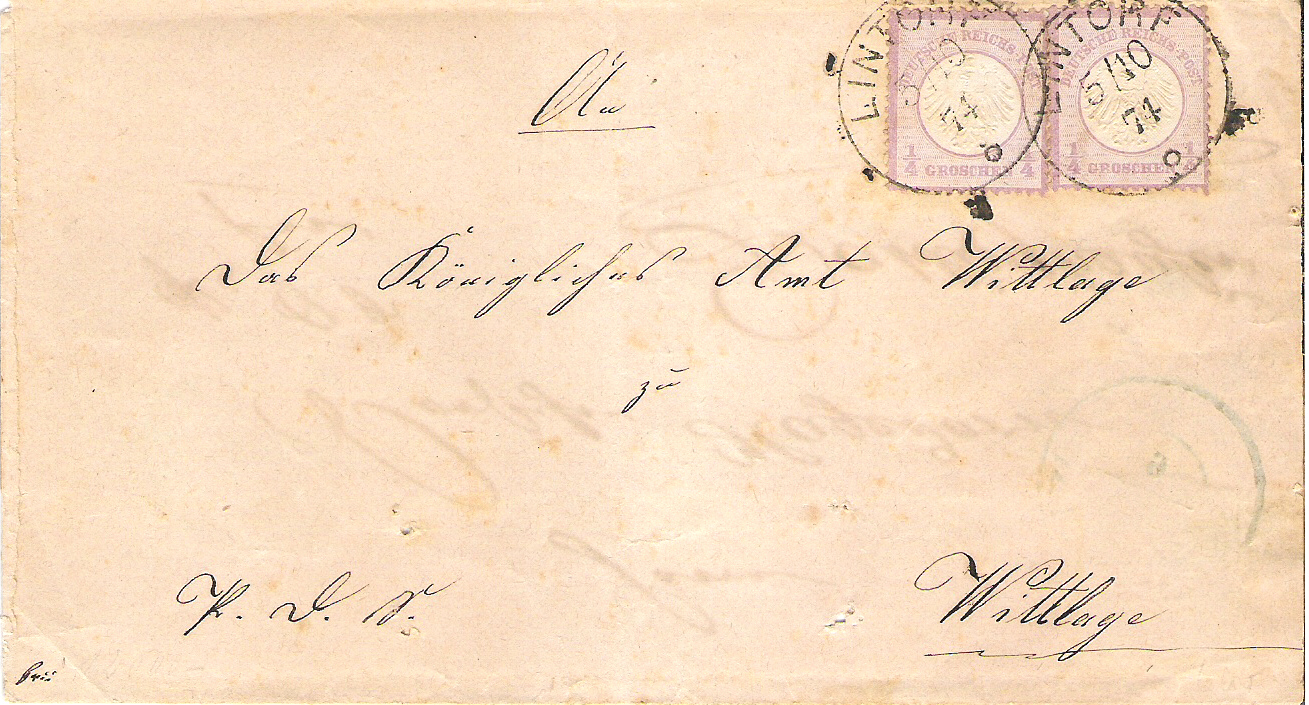 LINTORF
5/10
74
LINTORF
5/10
74
DEUTSCHE REICHS-POST
DEUTSCHE REICHS-POST
1/4 GROSCHEN 1/4
1/4 GROSCHEN 1/4
An
Das Königliches Amt Wittlage
zu
P. D. S. Wittlage